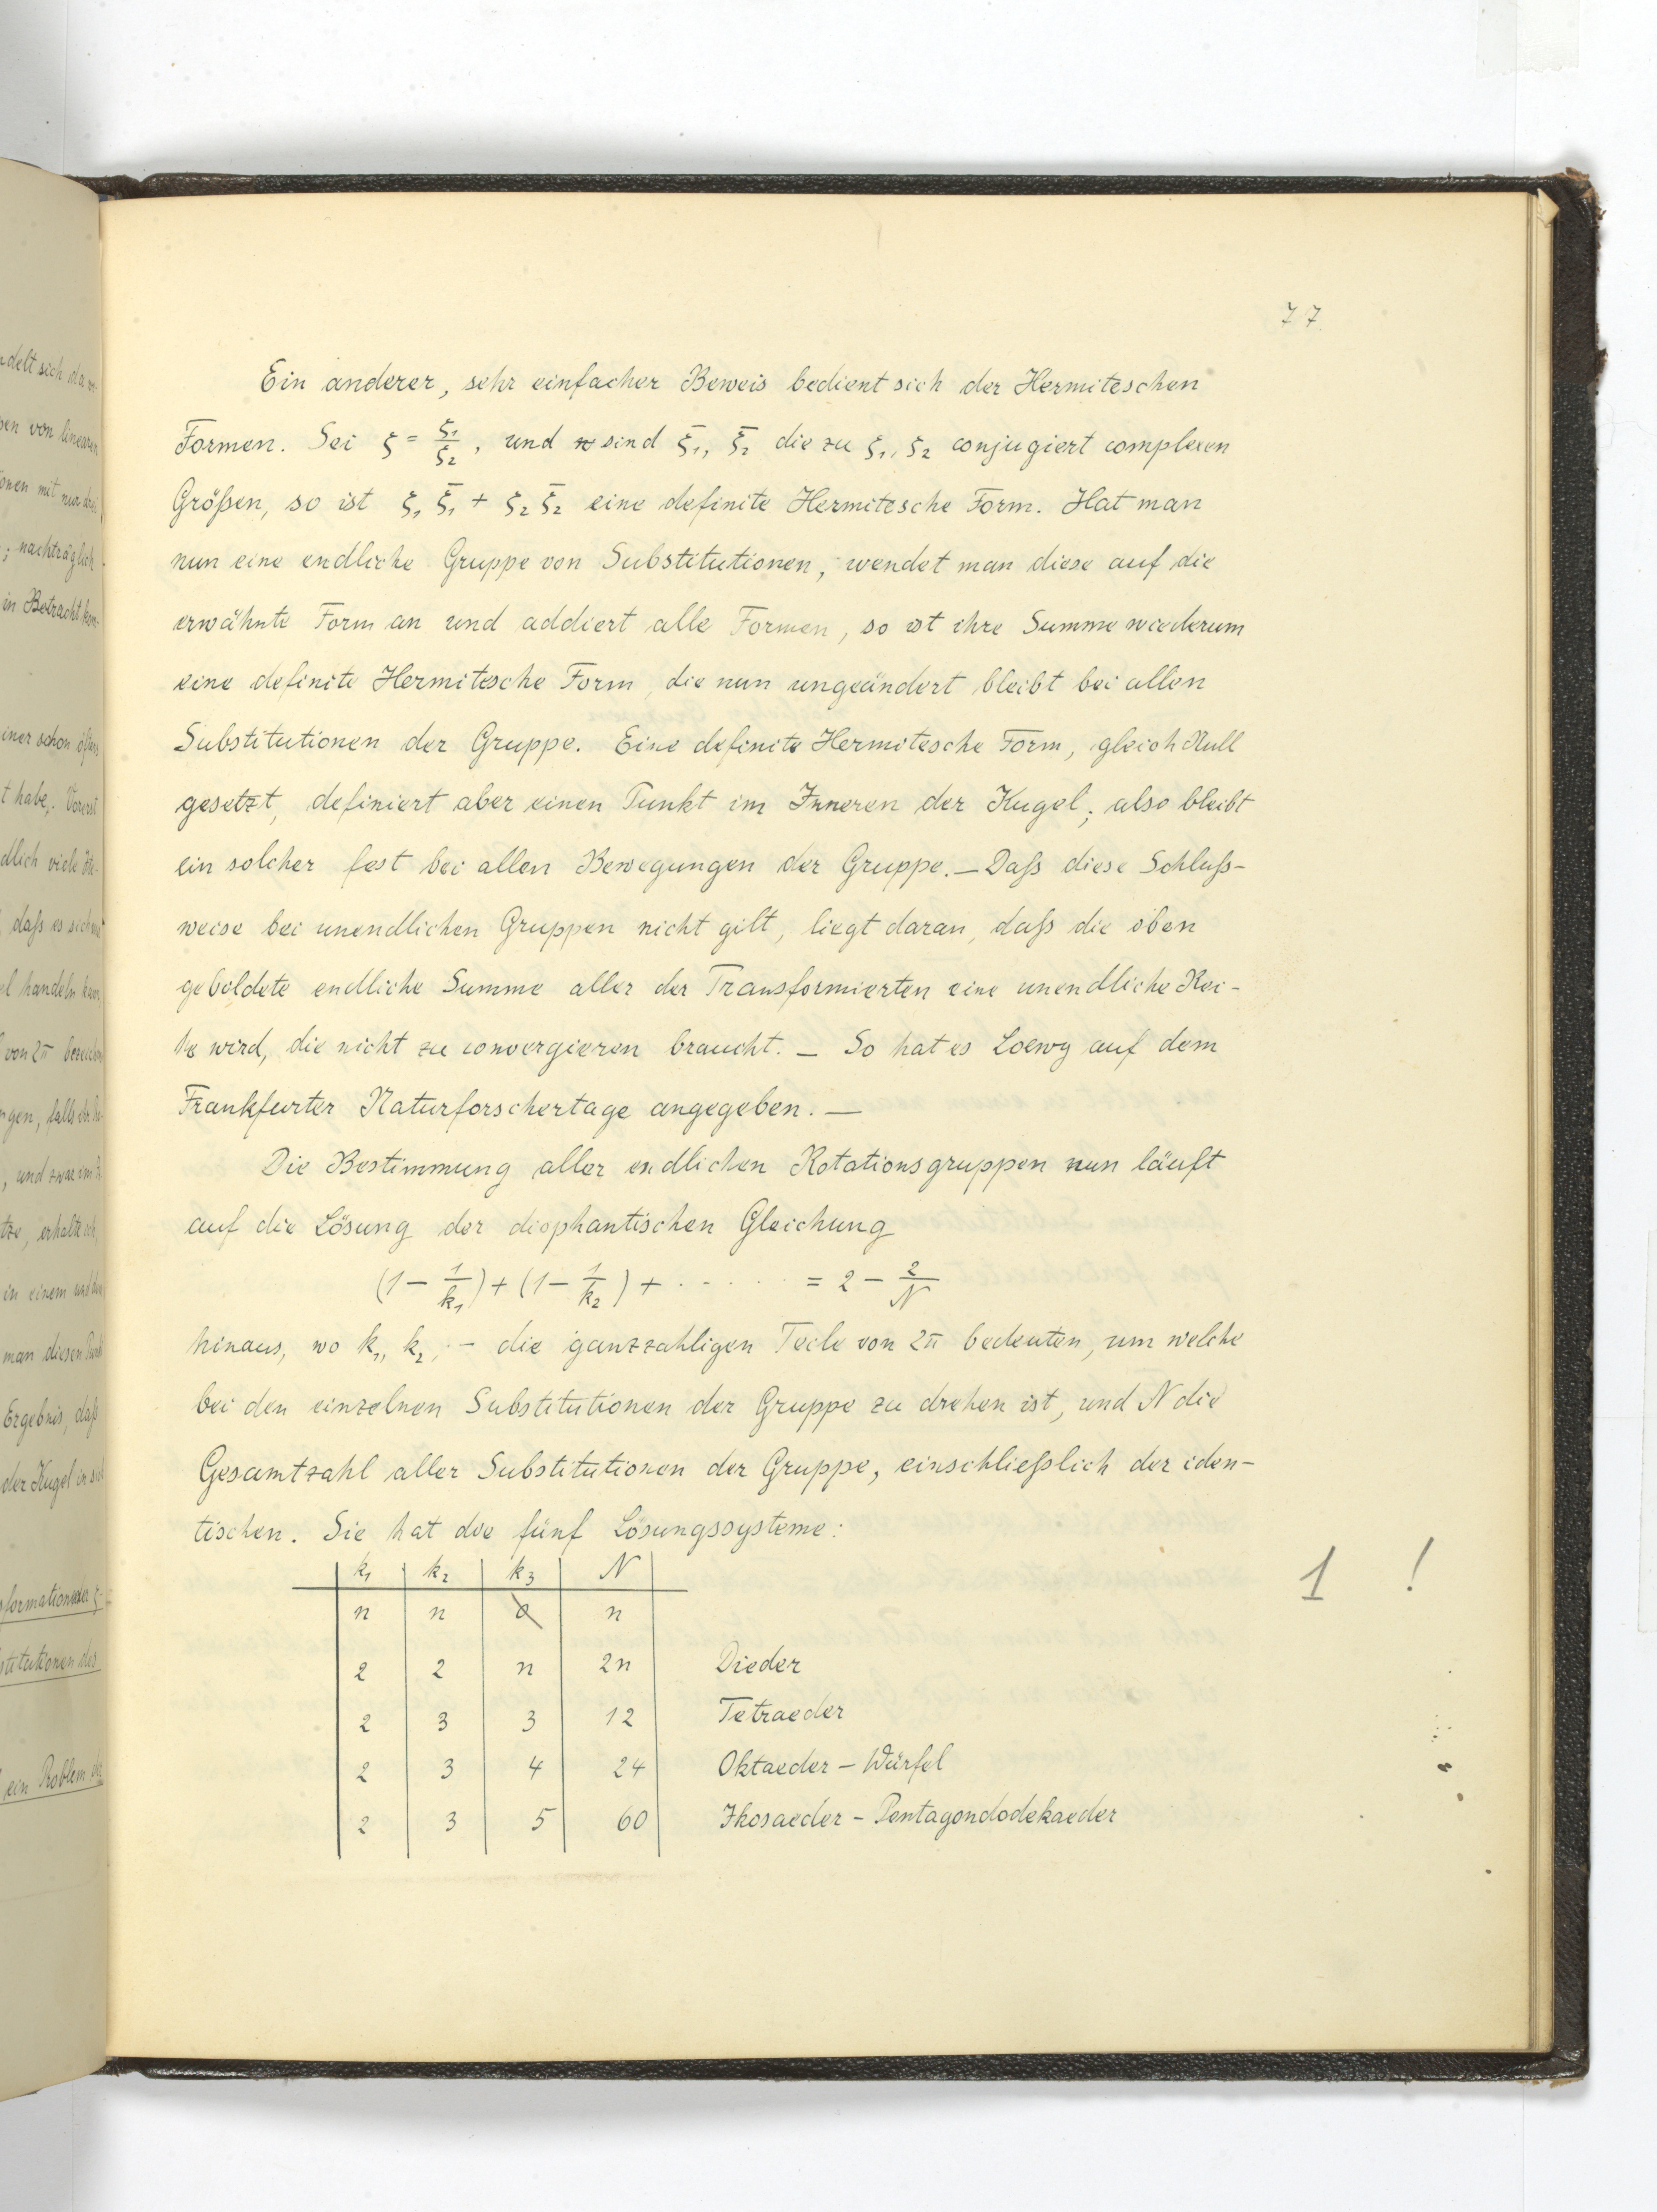 77
Ein anderer, sehr einfacher Beweis bedient sich der Hermiteschen
Formen. Sei ζ = ζ₁/ζ₂, und sind ζ̄₁, ζ̄₂ die zu ζ₁, ζ₂ conjugiert complexen
Größen, so ist ζ₁ ζ̄₁ + ζ₂ ζ̄₂ eine definite Hermitesche Form. Hat man
nun eine endliche Gruppe von Substitutionen, wendet man diese auf die
erwähnte Form an und addiert alle Formen, so ist ihre Summe wiederum
eine definite Hermitesche Form, die nun ungeändert bleibt bei allen
Substitutionen der Gruppe. Eine definite Hermitesche Form, gleich Null
gesetzt, definiert aber einen Punkt im Inneren der Kugel; also bleibt
ein solcher fest bei allen Bewegungen der Gruppe. — Daß diese Schluß-
weise bei unendlichen Gruppen nicht gilt, liegt daran, daß die oben
gebildete endliche Summe aller der Transformierten eine unendliche Rei-
he wird, die nicht zu convergieren braucht. — So hat es Loewy auf dem
Frankfurter Naturforschertage angegeben. —
Die Bestimmung aller endlichen Rotationsgruppen nun läuft
auf die Lösung der diophantischen Gleichung
(1 − 1/k₁) + (1 − 1/k₂) + · · · · · = 2 − 2/N
hinaus, wo k₁, k₂, ·− die ganzzahligen Teile von 2π bedeuten, um welche
bei den einzelnen Substitutionen der Gruppe zu drehen ist, und N die
Gesamtzahl aller Substitutionen der Gruppe, einschließlich der iden-
tischen. Sie hat die fünf Lösungssysteme:
k₁ k₂ k₃ N
1 !
n n 0 n
2 2 n 2n Dieder
2 3 3 12 Tetraeder
2 3 4 24 Oktaeder – Würfel
2 3 5 60 Ikosaeder – Pentagondodekaeder